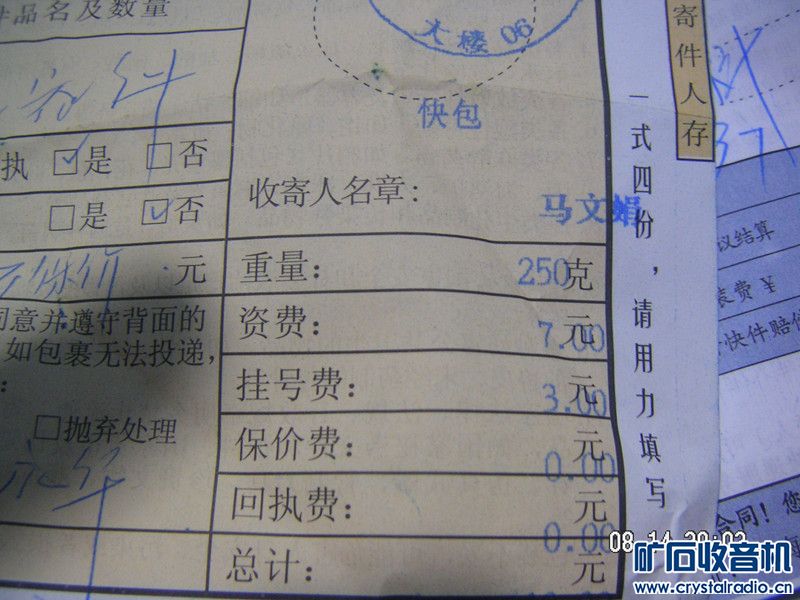 件品名及数量
大楼 06
快包
寄件人存
一式四份，请用力填写
执 ☑是 □否
□是 ☑否
收寄人名章：
马文娟
元
重量：
250克
资费：
7.00元
挂号费：
3.00元
保价费：
0.00元
回执费：
0.00元
总计：
元
同意并遵守背面的
如包裹无法投递，
：
□抛弃处理
议结算
装费￥
快件赔偿
合同！您
08 14
矿石收音机
www.crystalradio.cn